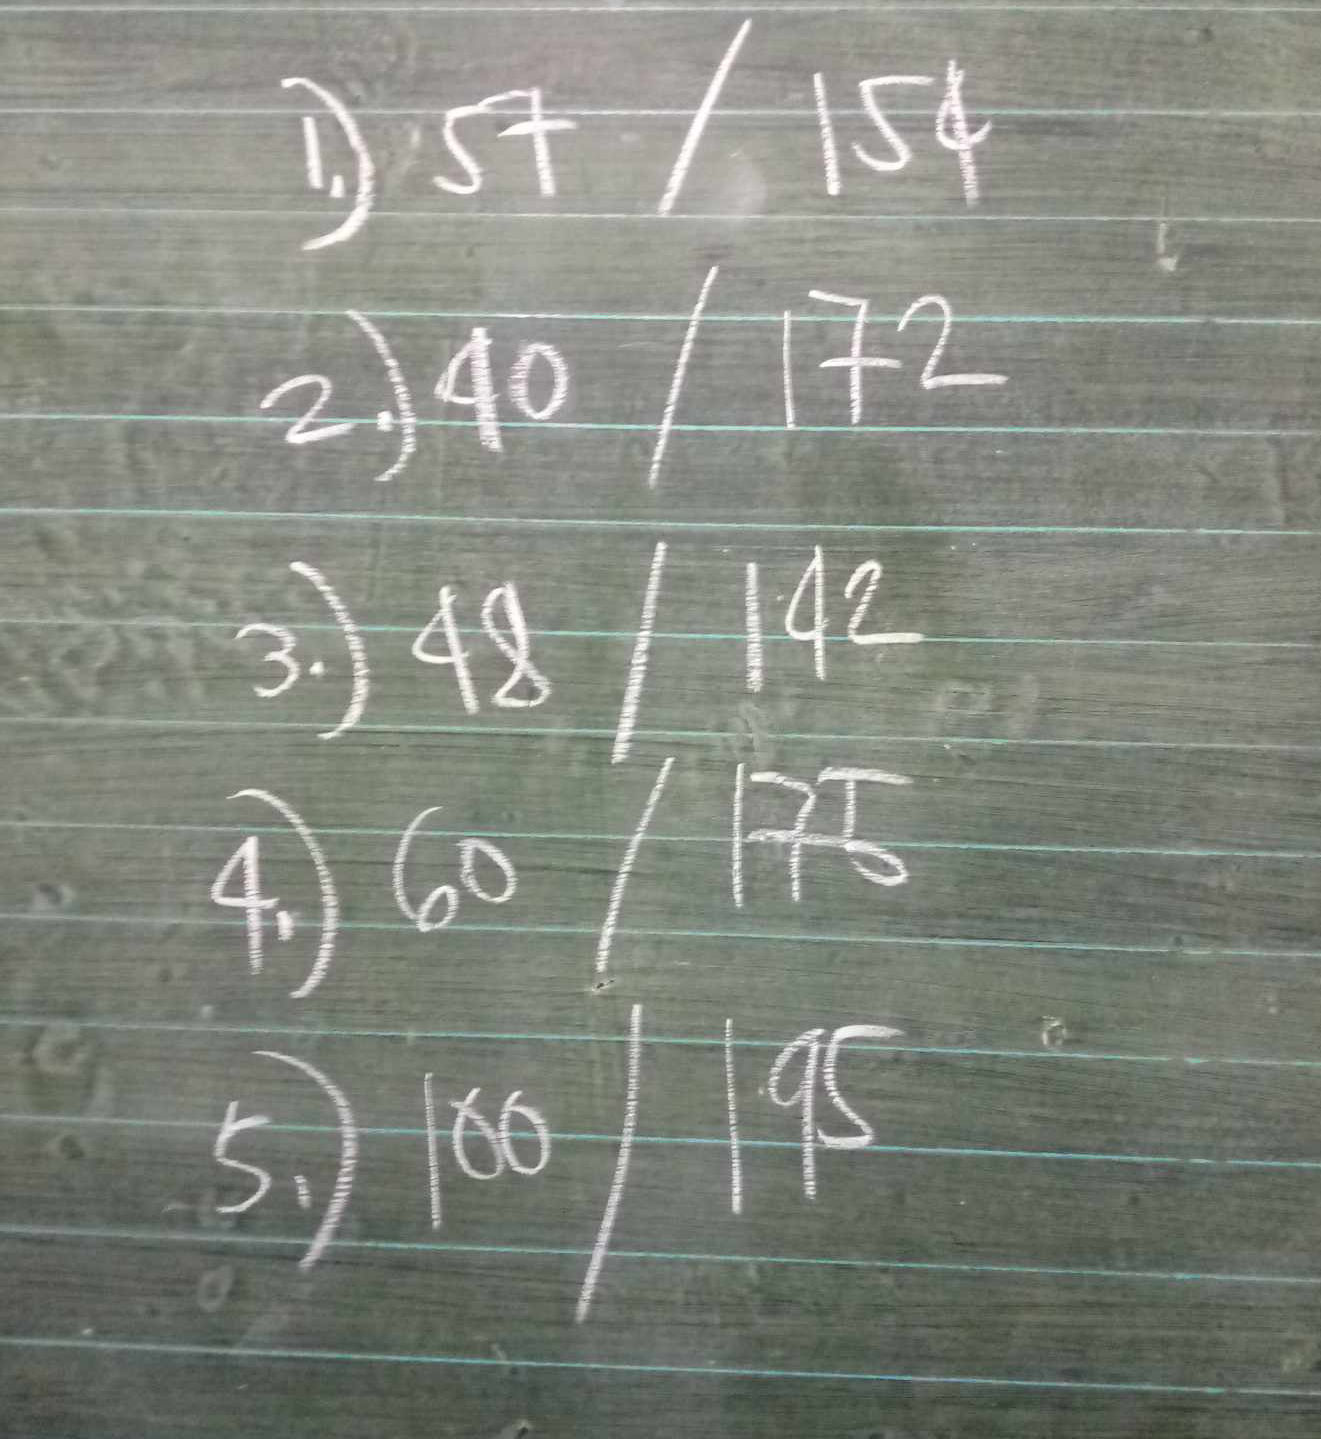 1.) 57 / 154
2.) 40 / 172
3.) 48 / 142
4.) 60 / 175
5.) 100 / 195